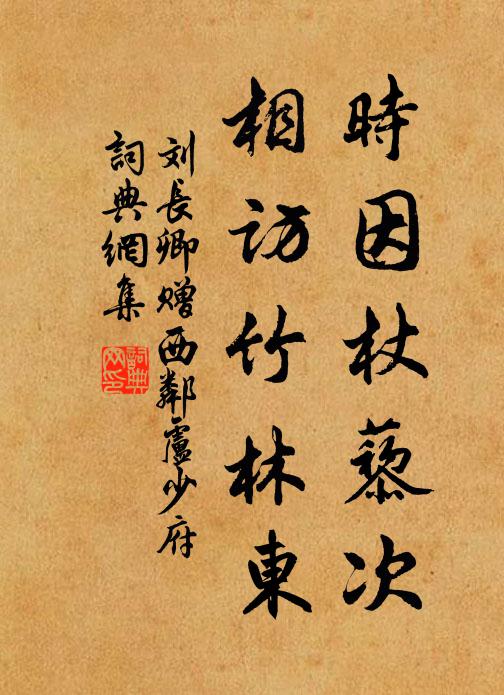 時因杖藜次
相訪竹林東
刘長卿赠西鄰盧少府
詞典網集
詞典网印